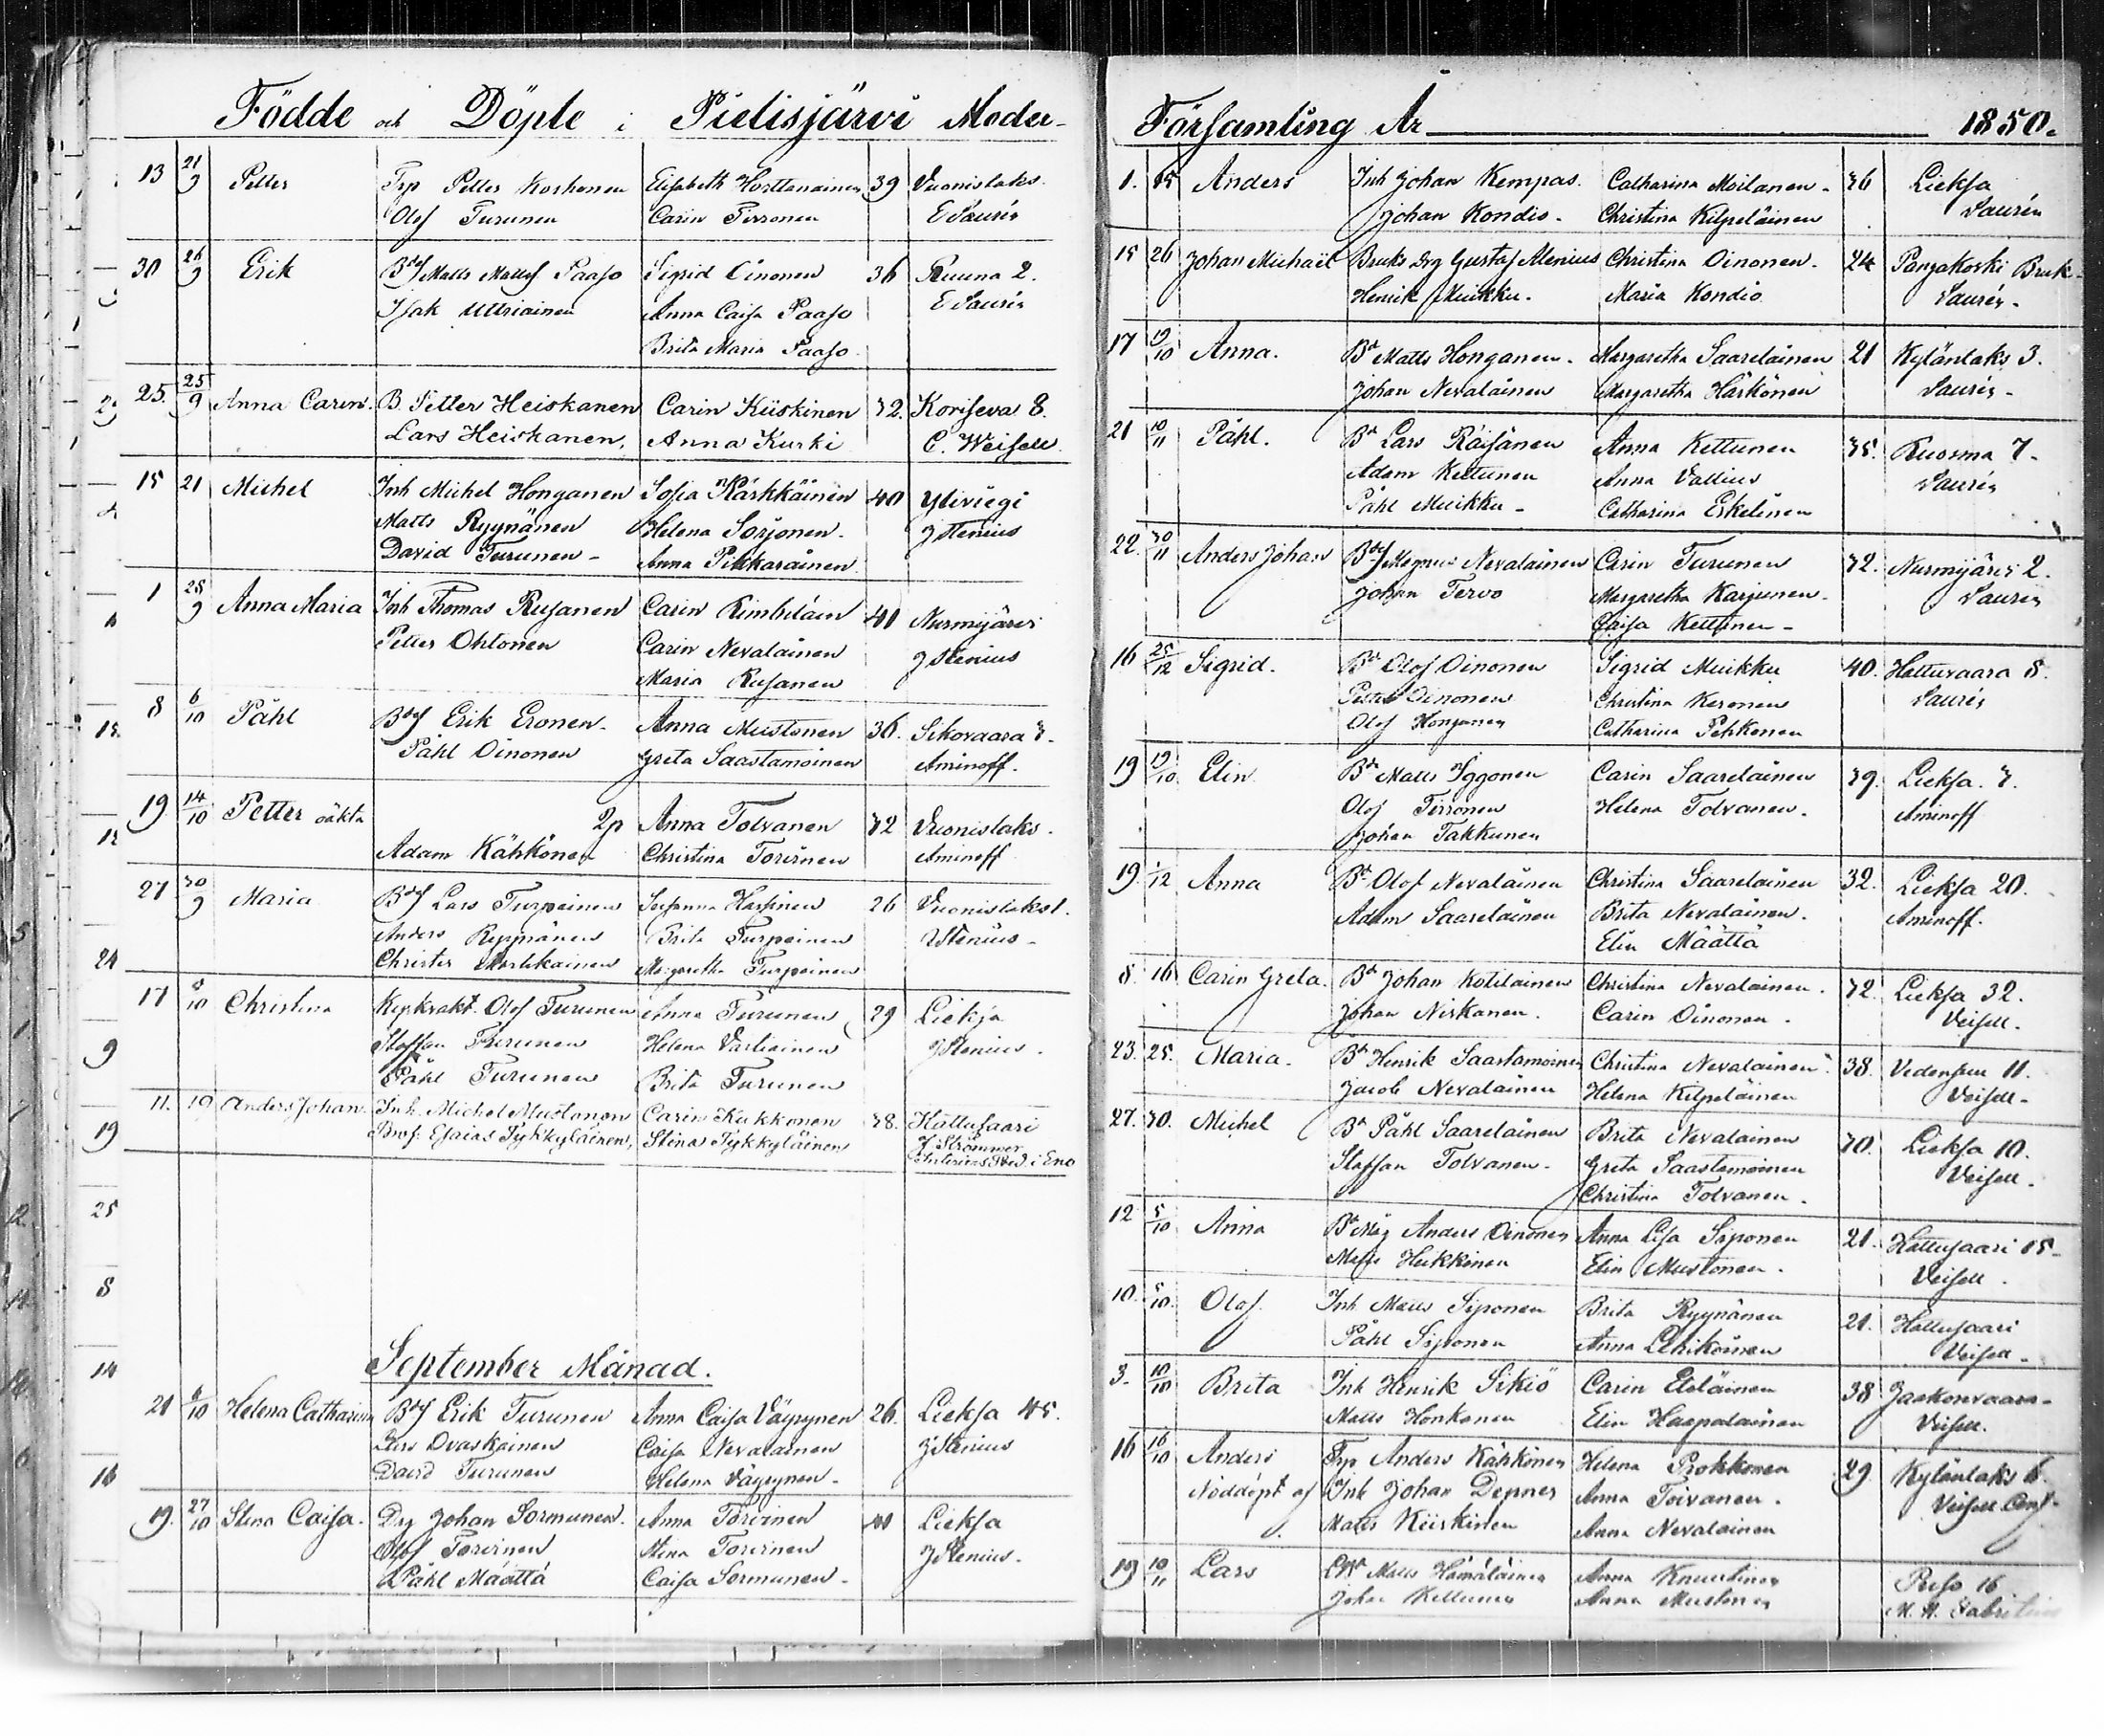 Födde och Döpte i Pielisjärvi Moder-
13 21/9 Petter Trp Petter Korhonen Elisabeth Horttanainen 39 Vuonislaks.
Olof Turunen Carin Pirronen E Saurén
30 26/9 Erik Bdf Matts Mattsf Paaso Sigrid Oinonen 36 Ruuna 2.
Isak Uttriainen Anna Caisa Paaso E Saurén
Brita Maria Paaso
25. 25/9 Anna Carin. B. Petter Heiskanen Carin Kiiskinen 32. Koriseva 8.
Lars Heiskanen, Anna Kurki C. Weisell
15 21 Michel Inh Michel Honganen Sofia Kärkkäinen 40 Yliviegi
Matts Ryynänen Helena Sorjonen. J Stenius
David Turunen - Anna Pikkarainen
1 28/9 Anna Maria Inh Thomas Rusanen Carin Kimbiläin 41 Nurmijärvi
Petter Ohtonen Carin Nevalainen J Stenius
Maria Rusanen
8 6/10 Påhl Bdf Erik Eronen. Anna Mustonen 36. Sikovaara 3.
Påhl Oinonen Greta Saastamoinen Aminoff.
19 14/10 Petter oäkta 2p Anna Tolvanen 32 Vuonislaks.
Adam Kähkönen Christina Torvinen Aminoff
27 30/9 Maria Bdf Lars Turpeinen Susanna Harsinen 26 Vuonislaks 1.
Anders Ryynänen Brita Turpeinen J Stenius -
Christer Martikainen Margaretha Turpeinen
17 8/10 Christina Kyrkvakt. Olof Turunen Anna Turunen 29 Lieksa
Staffan Turunen Helena Vartiainen J Stenius.
Påhl Turunen Brita Turunen
11. 19 Anders Johan. Inh. Michel Mustonen Carin Kukkonen 38. Hattusaari
Esaias Tykkyläinen, Stina Tykkyläinen J Strömmer
i Eno
September Månad.
21 6/10 Helena Catharina Bdf Erik Turunen Anna Caisa Väyrynen 26. Lieksa 45.
Lars Ovaskainen Caisa Nevalainen J Stenius
David Turunen Helena Väyrynen -
19. 27/10 Stina Caisa. Drg Johan Sormunen. Anna Torvinen 41 Lieksa
Olof Torvinen Stina Torvinen J Stenius.
Påhl Määttä Caisa Sormunen -
Församling År 1850.
1. 15 Anders Inh Johan Kempas. Catharina Moilanen - 36 Lieksa
Johan Kondio - Christina Kilpeläinen Saurén
15 26 Johan Michaël Bruks Drg Gustaf Alenius Christina Oinonen. 24 Pangakoski Bruk.
Henrik Muikku. Maria Kondio Saurén -
17 19/10 Anna. Bd Matts Honganen. Margaretha Saarelainen 21 Kyläntaks 3.
Johan Nevalainen Margaretha Härkönen Saurén -
21 10/11 Påhl. Bd Lars Räisänen Anna Kettunen 35. Ruosma 7.
Adam Kettunen Anna Vallius Saurén
Påhl Muikku - Catharina Eskelinen
22. 30/11 Anders Johan Bdf Magnus Nevalainen Carin Turunen 32. Nurmijärvi 2.
Johan Tervo Margaretha Karjunen - Saurén
Caisa Kettunen -
16 25/12 Sigrid. Bd Olof Oinonen Sigrid Muikku 40. Hattuvaara 8.
Petter Oinonen Christina Keronen Saurén
Olof Honganen Catharina Pehkonen
19 19/10 Elin Bd Matts Iggonen Carin Saarelainen 39. Lieksa. 3.
Olof Pirronen Helena Tolvanen. Aminoff
Johan Takkunen
19. 1/12 Anna Bd Olof Nevalainen Christina Saarelainen 32. Lieksa 20.
Adam Saarelainen Brita Nevalainen. Aminoff.
Elin Määttä
8. 16 Carin Greta. Bd Johan Kotilainen Christina Nevalainen. 32. Lieksa 32.
Johan Niskanen. Carin Oinonen. Veisell.
23. 25. Maria. Bd Henrik Saastamoinen Christina Nevalainen. 38. Vedensuu 11.
Jacob Nevalainen Helena Kilpeläinen Veisell -
27. 30. Michel Bd Påhl Saarelainen Brita Nevalainen 30. Lieksa 10.
Staffan Tolvanen. Greta Saastamoinen Veisell.
Christina Tolvanen.
12 5/10 Anna Bd Måg Anders Oinonen Anna Lisa Siponen 21. Hattusaari 15-
Matts Heikkinen Elin Mustonen. Veisell.
10. 5/10. Olof. Inh Matts Siponen Brita Ryynänen 21. Hattusaari
Påhl Siponen Anna Lehikoinen Veisell -
3. 10/10 Brita Inh Henrik Sikiö Carin Eteläinen 38 Jaakonvaara-
Matts Honkanen Elin Haapalainen Veisell.
16 16/10 Anders Trp Anders Kähkönen Helena Prokkonen 29. Kyläntaks 6.
Nöddöpt af Inh Johan Depner Anna Toivanen. Veisell
Matts Kiiskinen Anna Nevalainen
19 10/11 Lars Matts Hämäläinen Anna Knuutinen Puso 16.
Johan Kettunen Anna Mustonen